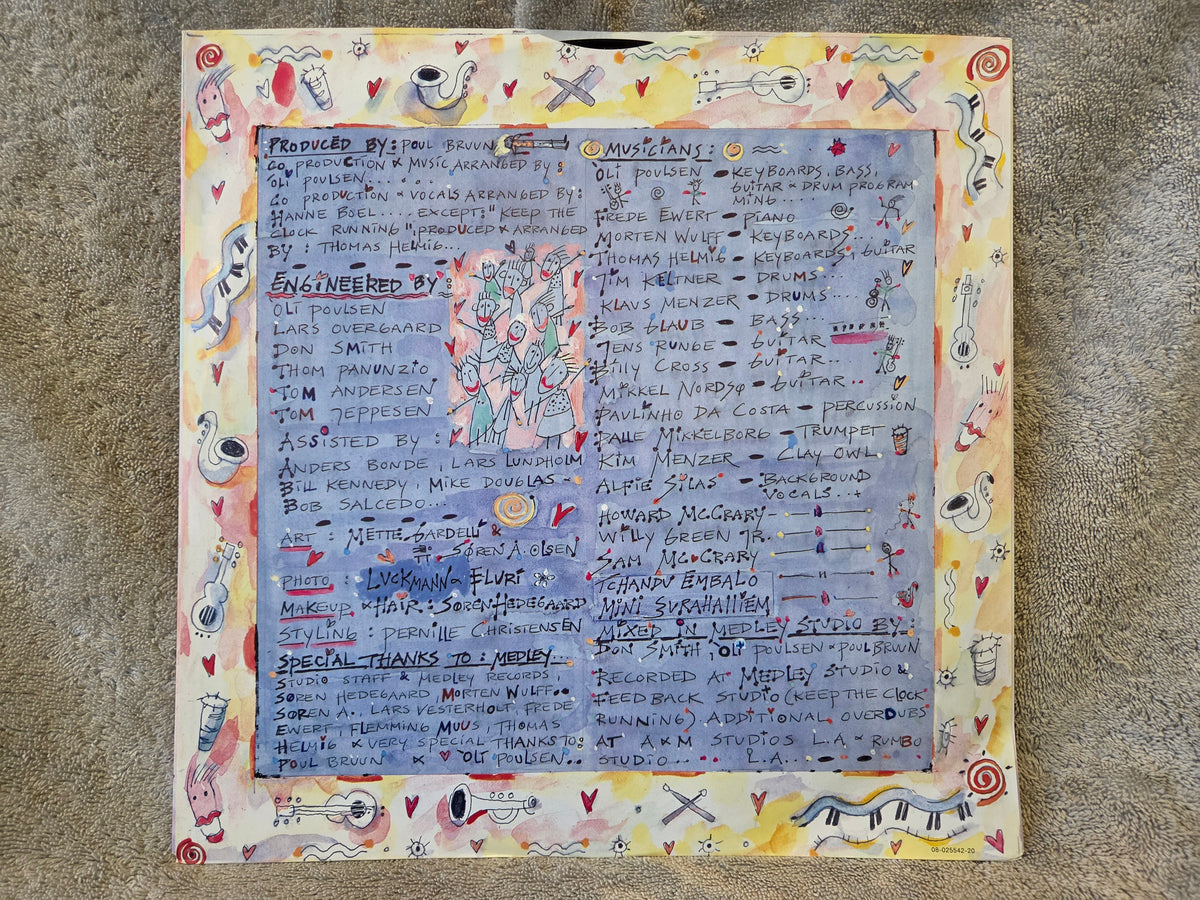 PRODUCED BY: POUL BRUUN
CO PRODUCTION & MUSIC ARRANGED BY:
OLI POULSEN......
CO PRODUCTION & VOCALS ARRANGED BY:
HANNE BOEL.... EXCEPT: "KEEP THE
CLOCK RUNNING" PRODUCED & ARRANGED
BY: THOMAS HELMIG...
ENGINEERED BY:
OLI POULSEN
LARS OVERGAARD
DON SMITH
THOM PANUNZIO
TOM ANDERSEN
TOM JEPPESEN
ASSISTED BY:
ANDERS BONDE, LARS LUNDHOLM
BILL KENNEDY, MIKE DOUGLAS &
BOB SALCEDO...
ART: METTE GARDELLI &
SØREN A. OLSEN
PHOTO: LUCKMANN & FLURI
MAKEUP & HAIR: SØREN HEDEGAARD
STYLING: PERNILLE CHRISTENSEN
SPECIAL THANKS TO: MEDLEY...
STUDIO STAFF & MEDLEY RECORDS,
SØREN HEDEGAARD, MORTEN WULFF..
SØREN A., LARS VESTERHOLT, FREDE
EWERT, FLEMMING MUUS, THOMAS
HELMIG & VERY SPECIAL THANKS TO:
POUL BRUUN & OLI POULSEN..
MUSICIANS:
OLI POULSEN - KEYBOARDS, BASS,
GUITAR & DRUM PROGRAM
MING....
FREDE EWERT - PIANO
MORTEN WULFF - KEYBOARDS..
THOMAS HELMIG - KEYBOARDS, GUITAR
JIM KELTNER - DRUMS...
KLAUS MENZER - DRUMS...
BOB GLAUB - BASS...
JENS RUNGE - GUITAR
BILLY CROSS - GUITAR..
MIKKEL NORDSØ - GUITAR..
PAULINHO DA COSTA - PERCUSSION
PALLE MIKKELBORG - TRUMPET
KIM MENZER - CLAY OWL
ALFIE SILAS - BACKGROUND
VOCALS..+
HOWARD McCRARY
WILLY GREEN JR.
SAM McCRARY
TCHANDU EMBALO
MINI SURAHALLIEM
MIXED IN MEDLEY STUDIO BY:
DON SMITH, OLI POULSEN & POUL BRUUN
RECORDED AT MEDLEY STUDIO &
FEED BACK STUDIO (KEEP THE CLOCK
RUNNING) ADDITIONAL OVERDUBS
AT A&M STUDIOS L.A & RUMBO
STUDIO... L.A..
08-025542-20